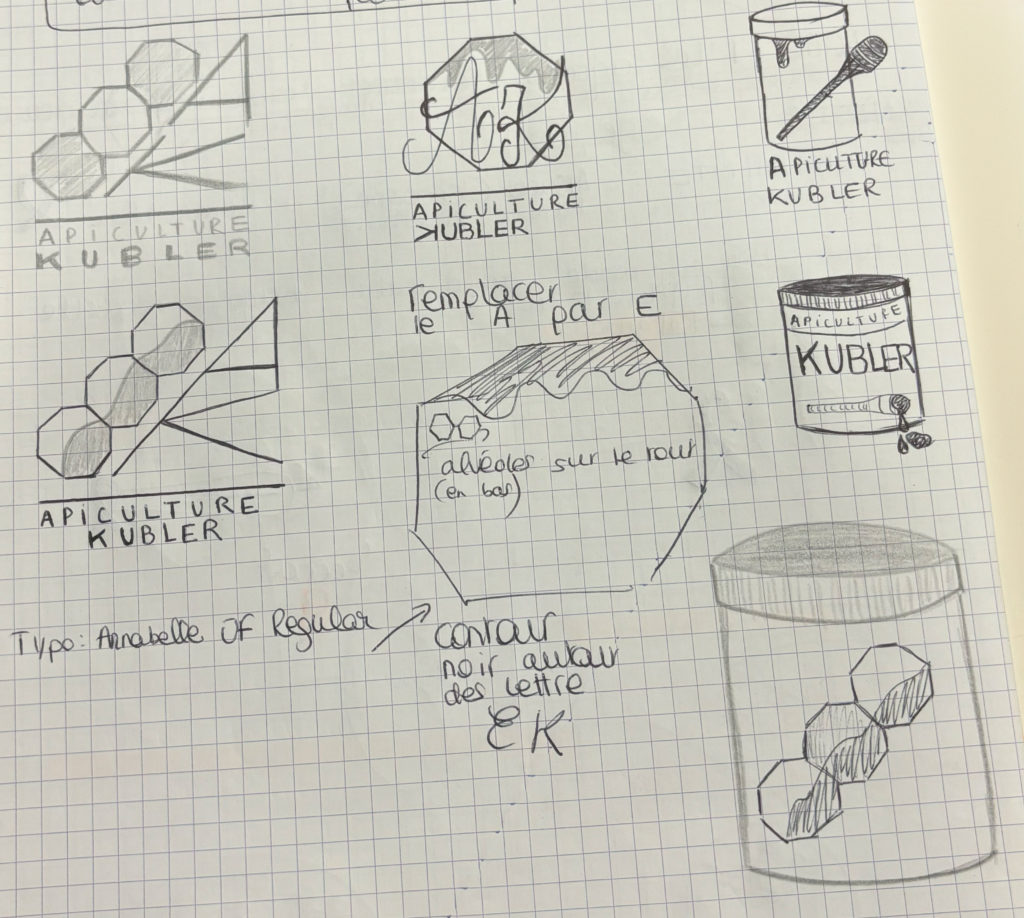 APICULTURE
KUBLER
APICULTURE
KUBLER
APICUTURE
KUBLER
remplacer
le A par E
APICULTURE
KUBLER
alvéoles sur le tour
(en bas)
APICULTURE
KUBLER
Typo: Annabelle OF Regular
contour
noir autour
des lettre
EK